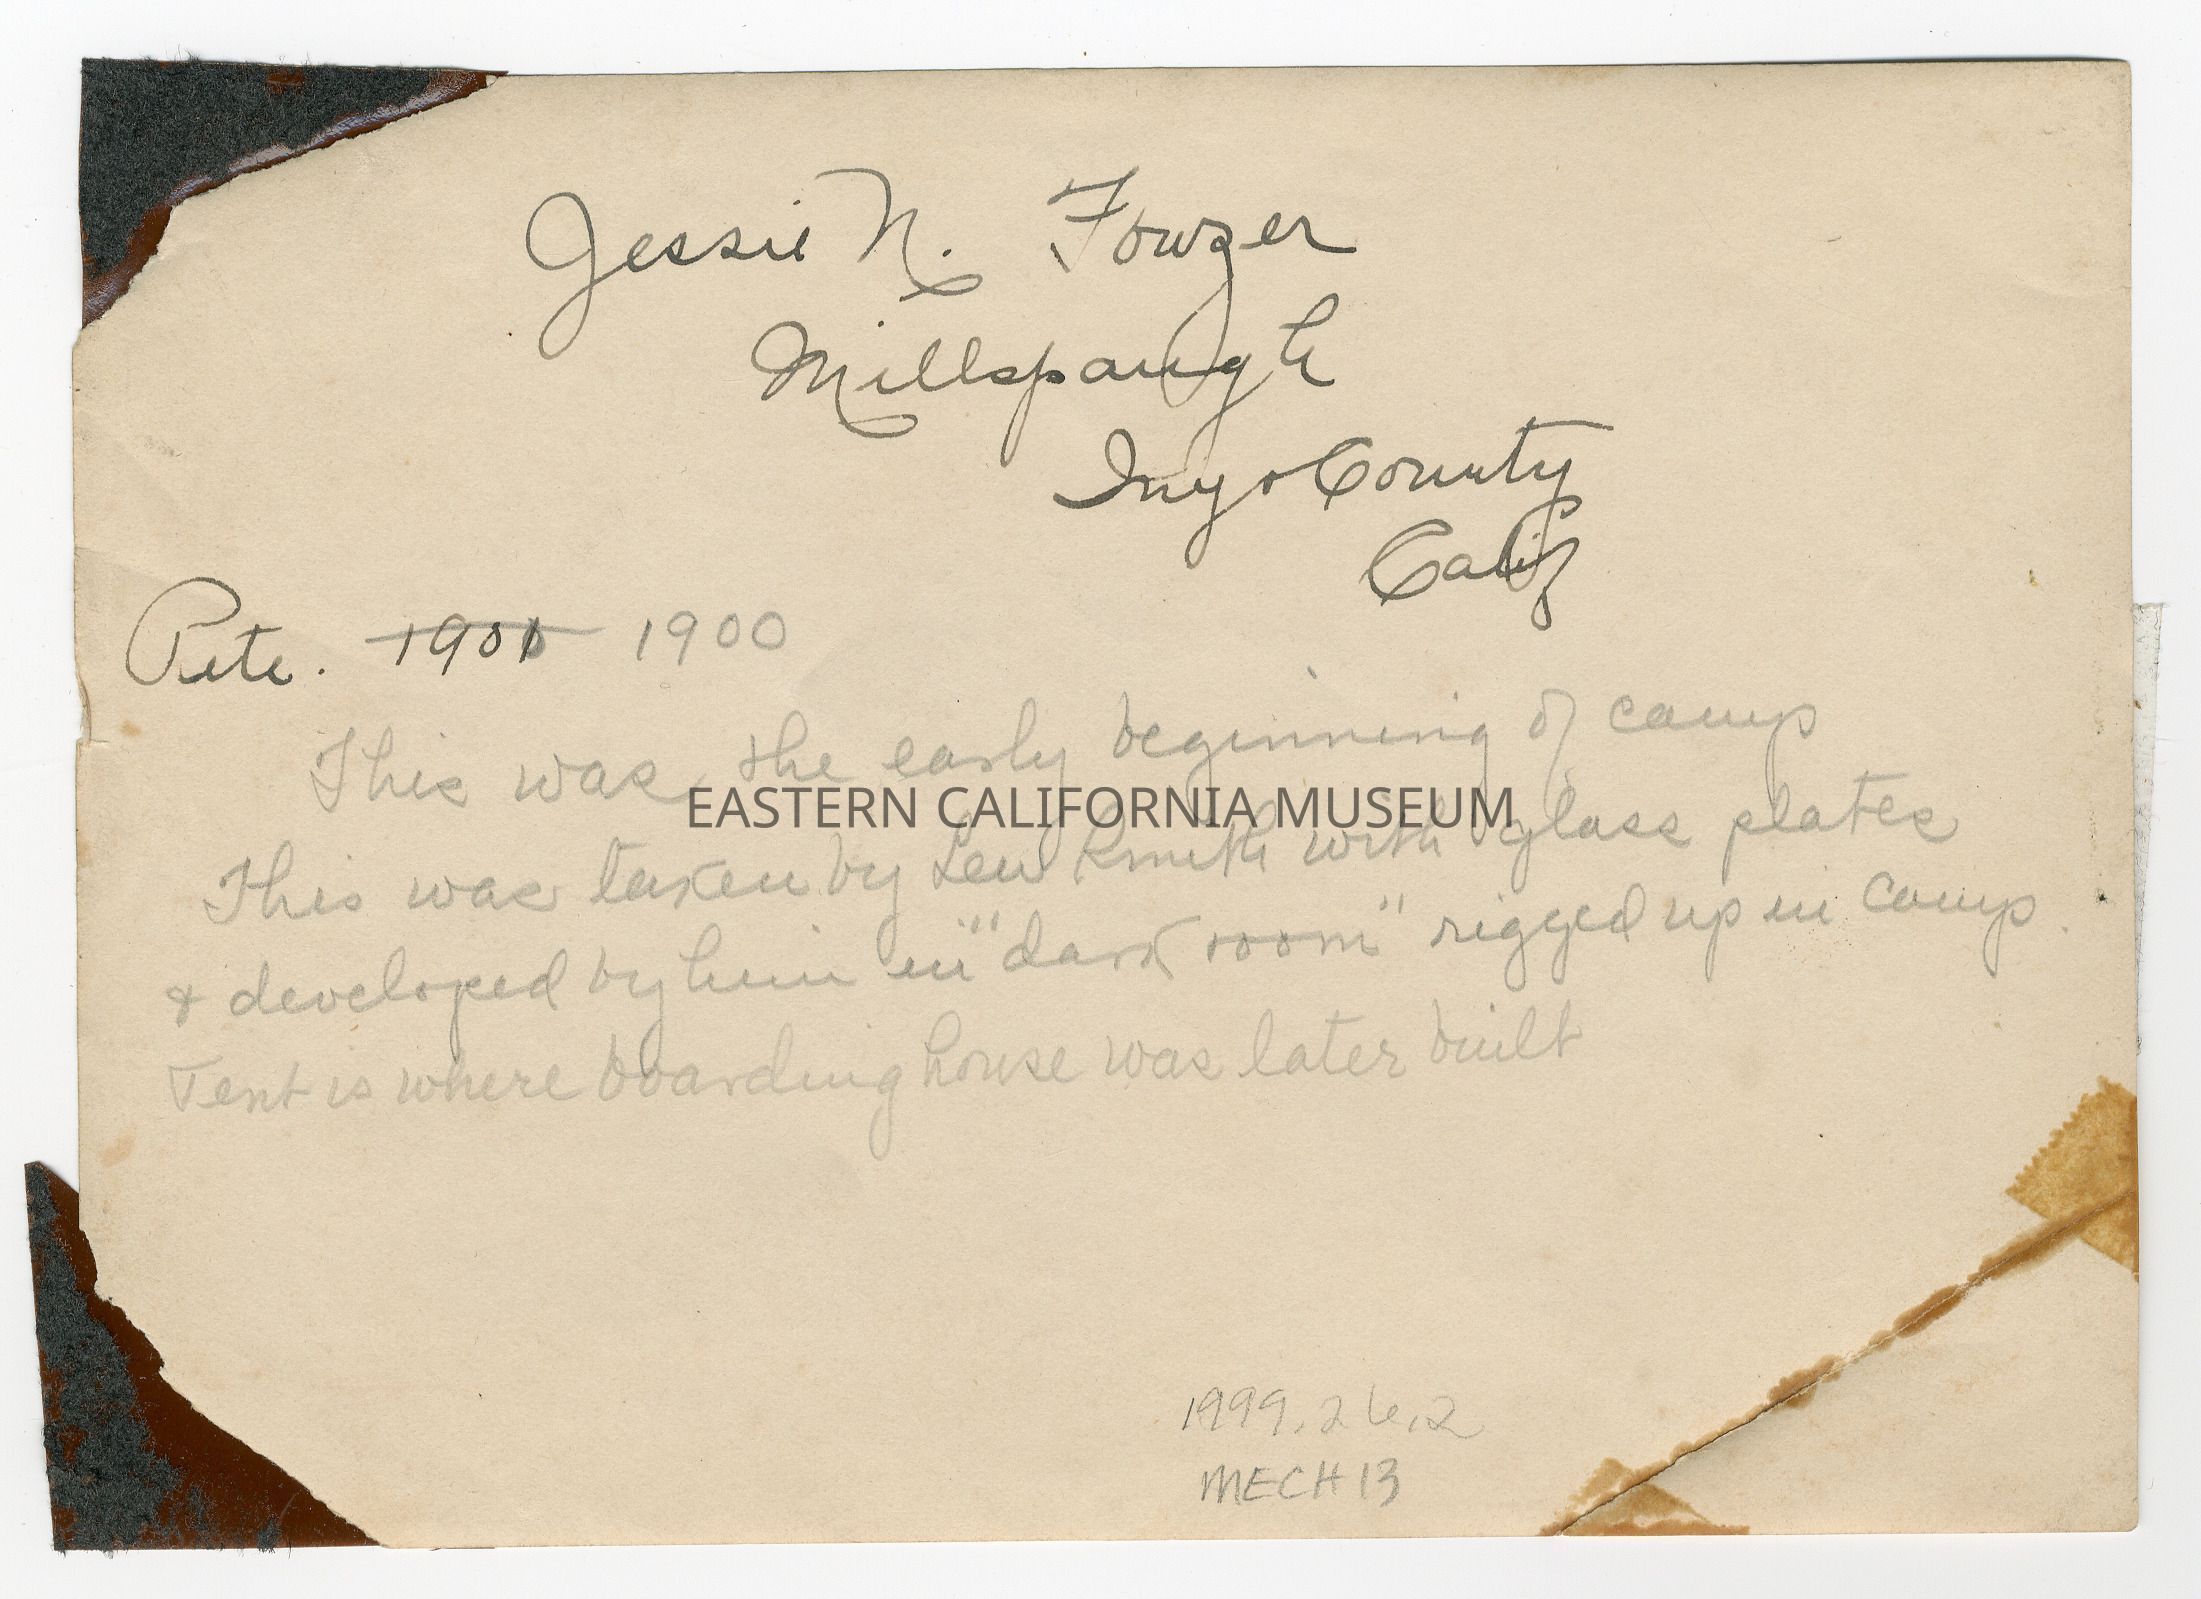 Jessie N. Fowzer
Millspaugh
Inyo County
Calif
Pete. 1901 1900
This was the early beginning of camp
EASTERN CALIFORNIA MUSEUM
This was taken by Lew Smith with glass plates
& developed by him in "dark room" rigged up in camp.
Tent is where boarding house was later built
1999.26.2
MECH 13